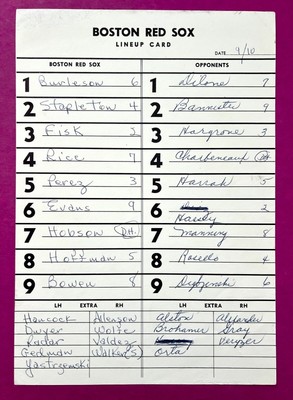 BOSTON RED SOX
LINEUP CARD
DATE 9/10
BOSTON RED SOX
1 Burleson 6
2 Stapleton 4
3 Fisk 2
4 Rice 7
5 Perez 3
6 Evans 9
7 Hobson D.H.
8 Hoffman 5
9 Bowen 8
OPPONENTS
1 Dilone 7
2 Bannister 9
3 Hargrove 3
4 Charboneaux DH
5 Harrah 5
6 Hassey 2
7 Manning 8
8 Rosello 4
9 Dybzinski 6
LH EXTRA RH
Hancock Allenson
Dwyer Wolfe
Rader Valdez
Gedman Walker (S)
Yastrzemski
LH EXTRA RH
Alston Alexander
Brohamer Gray
Veryzer
Orta